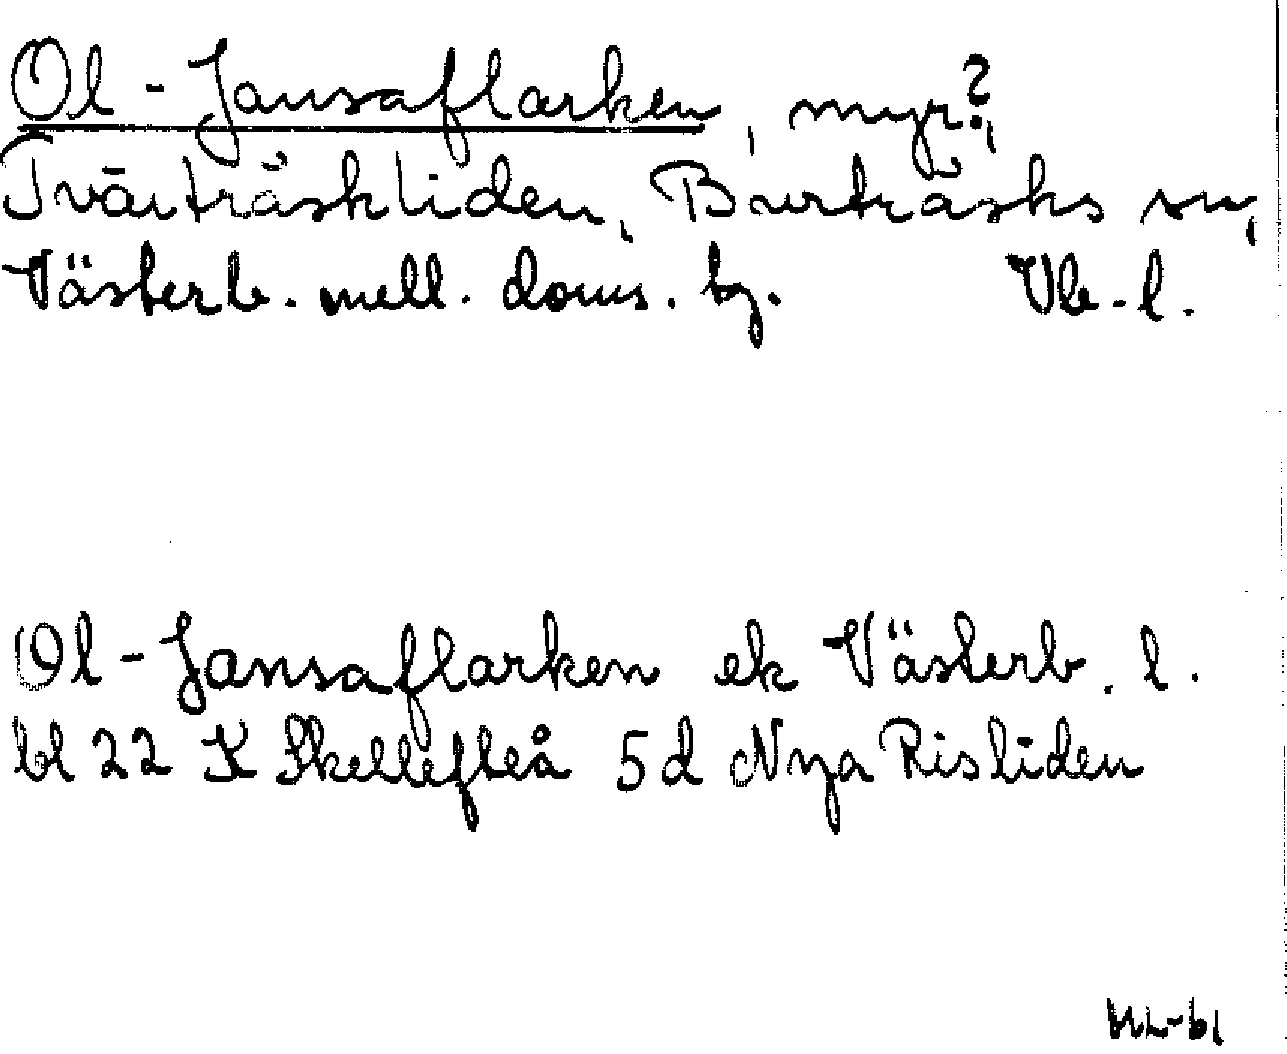 Ol-Jansaflarken, myr?,
Tvärträskliden, Burträsks sn,
Västerb. mell. doms. tg. Vb-l.
Ol-Jansaflarken ek Västerb. l.
bl 22 K Skellefteå 5d Nya Risliden